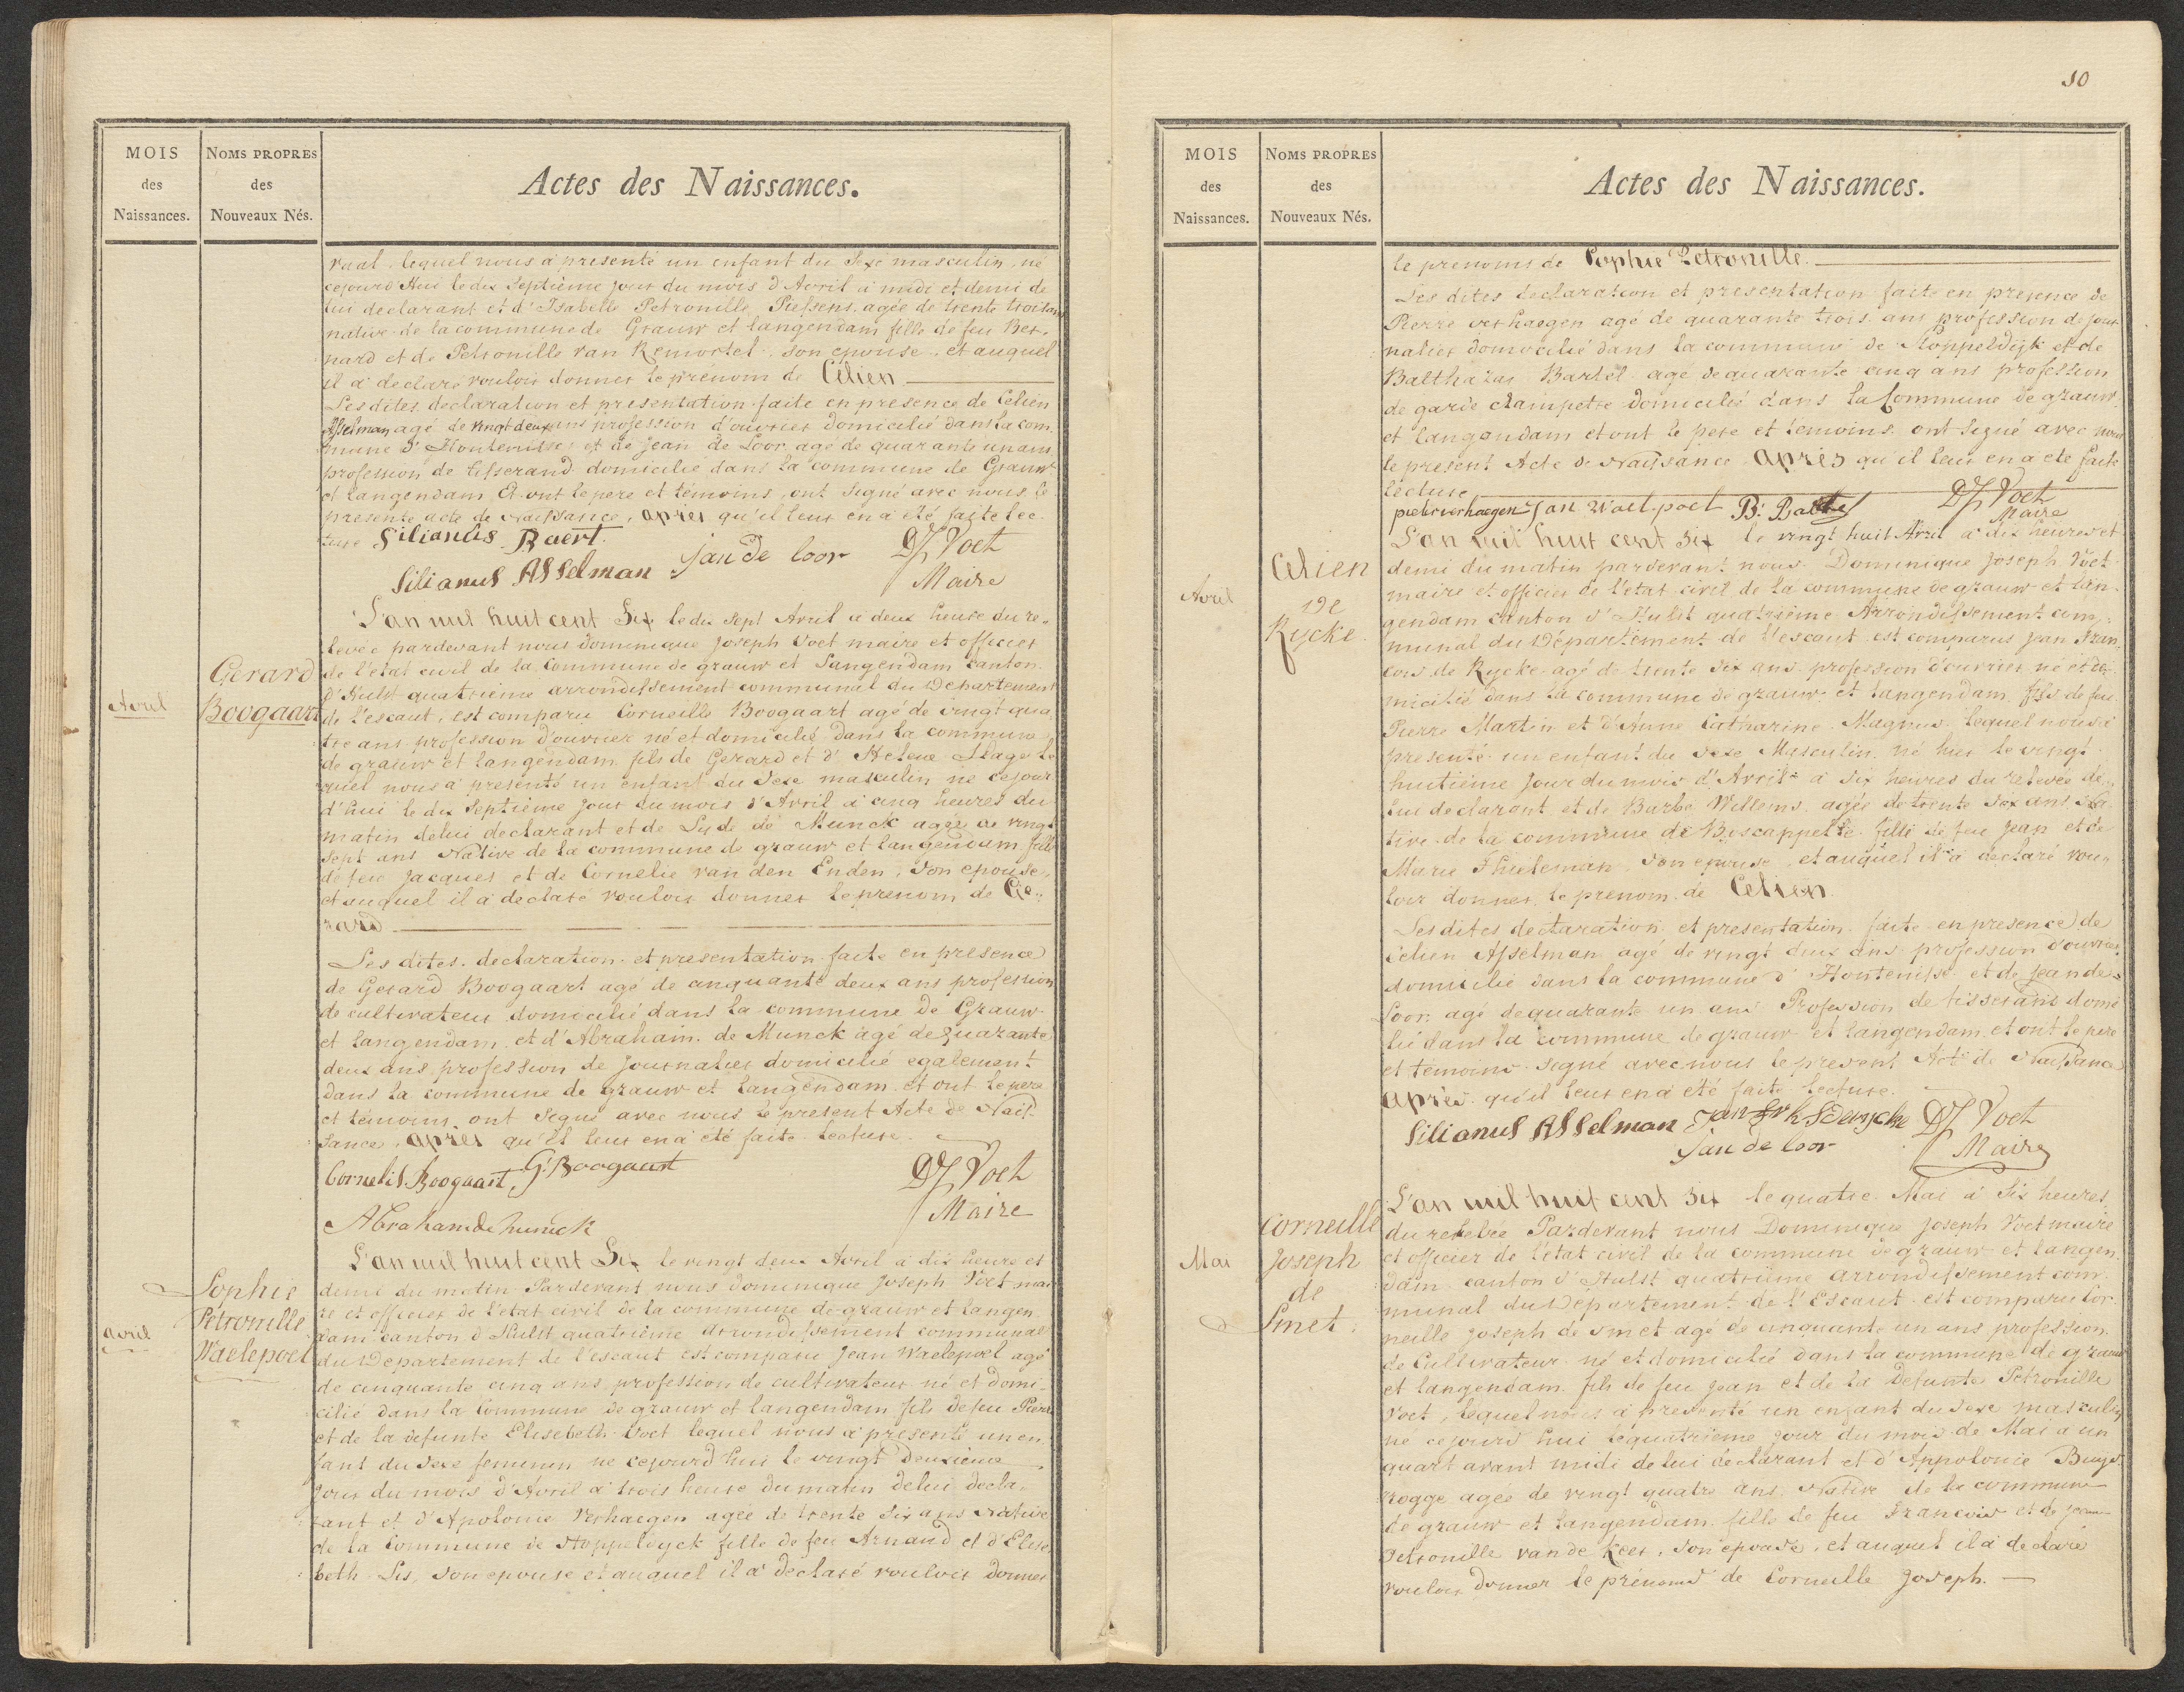 MOIS
des
Naissances.
NOMS PROPRES
des
Nouveaux Nés.
Actes des Naissances.
lequel nous a presenté un enfant du Sexe masculin, né
cejourd'Hui le dix Septieme jour du mois d'Avril a midi et demi de
lui declarant et d'Isabelle Petronille Piessens agée de trente trois ans
native de la commune de Grauw et langendam fille de feu Ber-
nard et de Petronille van Remortel, son epouse, et auquel
il a declaré vouloir donner le prenom de Célien
Les dites declaration et presentation faite en presence de Celien
Asselman agé de vingt deux ans profession d'ouvrier domicilié dans la com-
mune d'Hontenisse et de jean de Loor agé de quarante un ans
profession de tisserand domicilié dans la commune de Grauw
et langendam et ont le pere et témoins, ont signé avec nous le
presente acte de Naissance, après qu'il leur en a été faite lec-
ture Silianus Baert.
Silianus Asselman jan de loor DJ Voet
Maire
Avril
Gerard
Boogaart
L'an mil huit cent Six le dix sept Avril a deux heure du re-
levée pardevant nous dominique Joseph Voet maire et officier
de l'etat civil de la commune de grauw et Langendam canton
d'Hulst quatrieme arrondissement communal du Departement
de l'escaut, est comparu Corneille Boogaart agé de vingt qua-
tre ans profession d'ouvrier né et domicilié dans la commune
de grauw et langendam fils de Gerard et d'Helene Stage le-
quel nous a presenté un enfant du Sexe masculin né cejour
d'hui le dix Septieme jour du mois d'Avril a cinq heures du
matin de lui declarant et de de Munck agée de vingt
sept ans Native de la commune de grauw et langendam fille
de feu Jacques et de Cornelie van den Enden, son epouse,
et auquel il a declaré vouloir donner le prenom de Ge-
rard
Les dites declaration et presentation faite en presence
de Gerard Boogaart agé de cinquante deux ans profession
de cultivateur domicilié dans la commune de Grauw
et langendam et d'Abraham de Munck agé de quarante
deux ans profession de Journalier domicilié egalement
dans la commune de grauw et langendam et ont le pere
et témoins ont signé avec nous le present Acte de Nais-
sance, après qu'il leur en a été faite lecture.
Cornelis Boogaart, G: Boogaart DJ Voet
Abraham de Munck Maire
avril
Sophie
Petronille
Waelepoel
L'an mil huit cent Six le vingt deux Avril a dix heure et
demi du matin Pardevant nous dominique Joseph Voet mai-
re et officier de l'etat civil de la commune de grauw et langen
dam canton d'Hulst quatrieme arrondissement communal
du Departement de l'escaut est comparu Jean Waelepoel agé
de cinquante cinq ans profession de cultivateur né et domi-
cilié dans la Commune de grauw et langendam fils de feu Pierre
et de la defunte Elisebeth Voet lequel nous a presenté un en-
fant du Sexe feminin né cejourd'hui le vingt deuxieme
jour du mois d'Avril a trois heure du matin de lui decla-
rant et d'Apolonie Verhaegen agée de trente six ans Native
de la Commune de Stoppeldyck fille de feu Arnaud et d'Elise-
beth Lis, son epouse et auquel il a declaré vouloir donner
10
MOIS
des
Naissances.
NOMS PROPRES
des
Nouveaux Nés.
Actes des Naissances.
le prenoms de Sophie Petronille.
Les dites declaration et presentation faite en presence de
Pierre verhaegen agé de quarante trois ans profession de jour
nalier domocilié dans la commune de Stoppeldijk et de
Balthazar Bartel agé de quarante cinq ans profession
de garde champetre domicilié dans la Commune de grauw
et langendam et ont le pere et temoins ont signé avec nous
le present Acte de Naissance Après qu'il leur en a eté faite
lecture
pieter verhaegen Jan Waelpoel B: DJ Voet
Maire
Avril
Celien
De
Rycke.
L'an mil huit cent six le vingt huit Avril a dix heures et
demi du matin pardevant nous Dominique Joseph Voet
maire et officier de l'etat civil de la commune de grauw et lan-
gendam canton d'Hulst quatrieme Arrondissement com-
munal du Département de l'escaut est comparus Jean Fran-
cois de Rycke agé de trente six ans profession d'ouvrier né et do-
micilié dans la commune de grauw et langendam fils de feu
Pierre Martin et d'Anne Catharine Magnus lequel nous a
presenté un enfant du sexe Masculin né hier le vingt
huitieme Jour du mois d'Avril a six heures du relevée de
lui declarant et de Barbe Willems agée de trente six ans Na-
tive de la commune de Boscappelle fille de feu Jean et de
Marie Thuleman, son epouse, et auquel il a declaré vou-
loir donner le prenom de Celien.
Les dites declaration et presentation faite en presence de
Celien Asselman agé de vingt deux ans profession d'ouvrier
domicilié dans la commune d'Hontenisse et de Jean de
Loor agé de quarante un ans Profession de tisserand domi-
lié dans la commune de grauw et langendam et ont le pere
et temoins signé avec nous le present Acte de Naissance
Après qu'il leur en a eté faite lecture.
Silianus Asselman Jan DJ Voet
Jan de loor Maire
Mai
Corneille
Joseph
de
Smet.
L'an mil huit cent six le quatre Mai a Six heures
du relevée Pardevant nous Dominique Joseph Voet maire
et officier de l'etat civil de la commune de grauw et langen
dam canton d'Hulst quatrieme arrondissement com-
munal du Departement de l'Escaut est comparu Cor-
neille Joseph de Smet agé de cinquante un ans profession
de Cultivateur né et domicilié dans la commune de grauw
et langendam fils de feu Jean et de la Defunte Petronille
Voet, lequel nous a presenté un enfant du sexe masculin
né cejourd'hui le quatrieme jour du mois de Mai a un
quart avant midi de lui declarant et d'Appolonie Buys-
rogge agée de vingt quatre ans Native de la commune
de grauw et langendam fille de feu Francois et de jean
Petronille van de Keer, son epouse, et auquel il a declaré
vouloir donner le prénoms de Corneille Joseph.